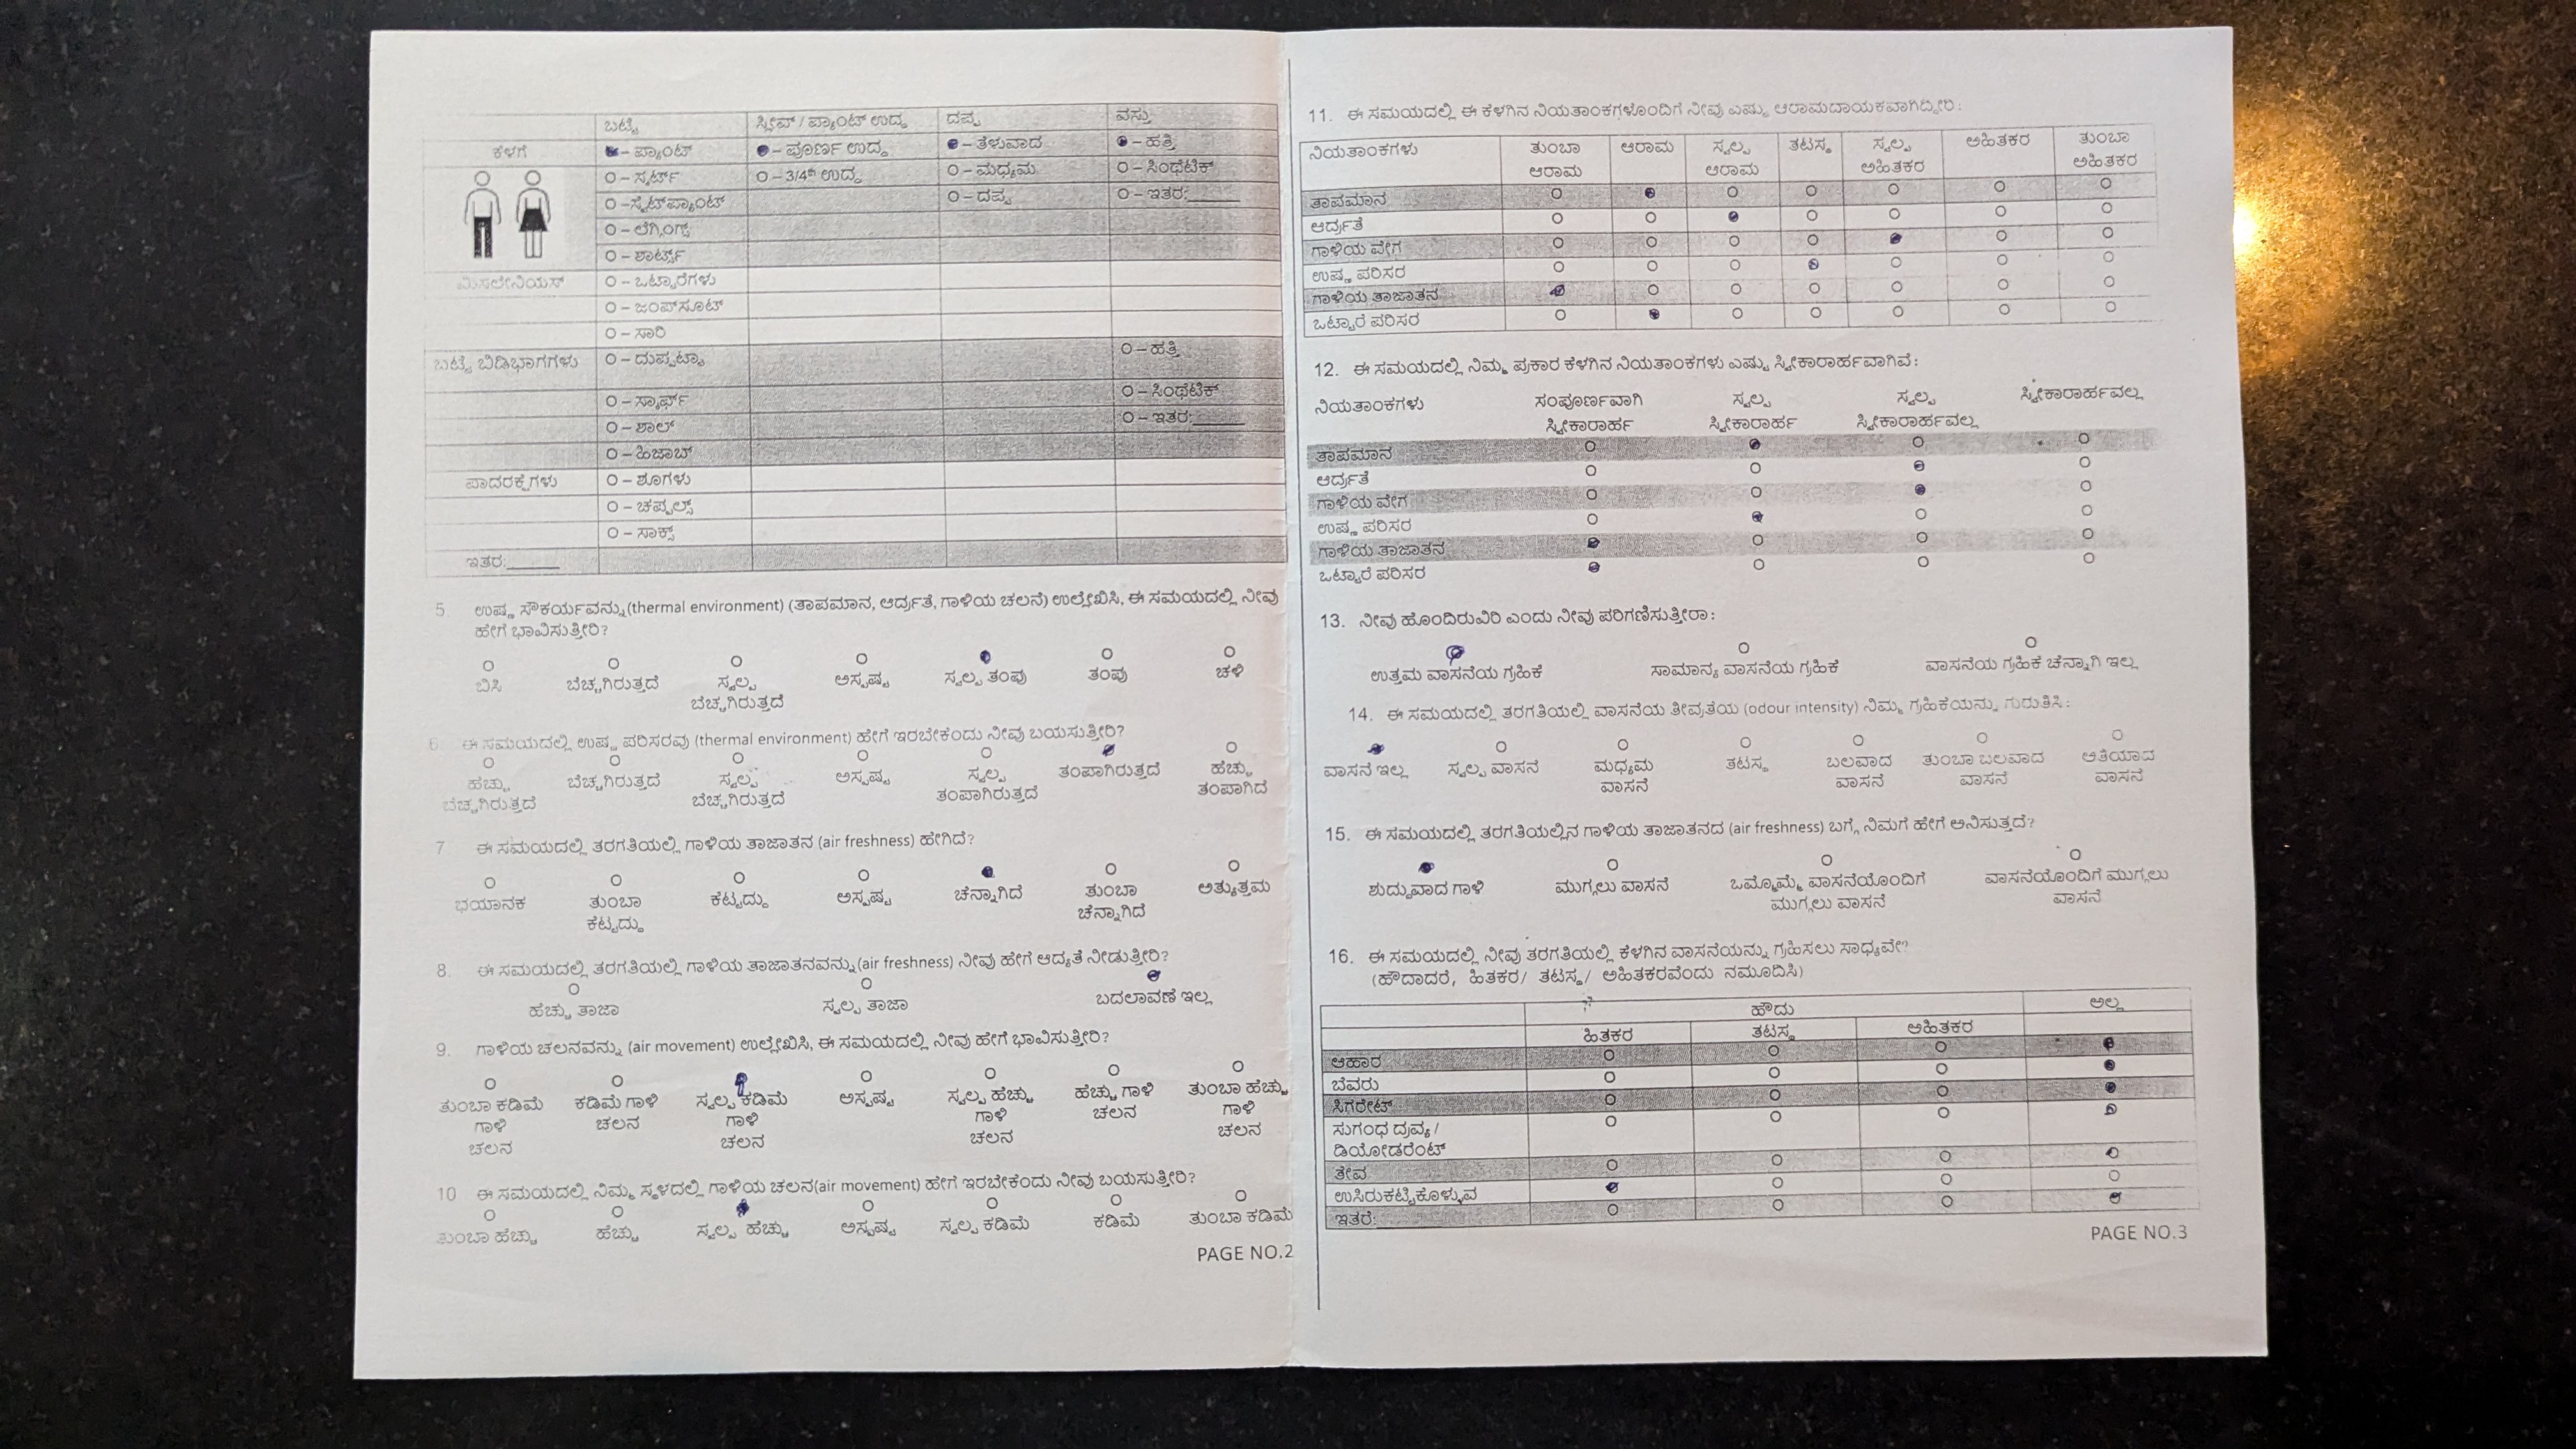 ಬಟ್ಟೆ ಸ್ಲೀವ್ / ಪ್ಯಾಂಟ್ ಉದ್ದ ದಪ್ಪ ವಸ್ತು
ಕೆಳಗೆ – ಪ್ಯಾಂಟ್ – ಪೂರ್ಣ ಉದ್ದ – ತೆಳುವಾದ – ಹತ್ತಿ
O – ಸ್ಕರ್ಟ್ O – 3/4th ಉದ್ದ O – ಮಧ್ಯಮ O – ಸಿಂಥೆಟಿಕ್
O – ಸ್ವೆಟ್‌ಪ್ಯಾಂಟ್ O – ದಪ್ಪ O – ಇತರ:______
O – ಲೆಗ್ಗಿಂಗ್ಸ್
O – ಶಾರ್ಟ್ಸ್
ಮಿಸಲೇನಿಯಸ್ O – ಒಟ್ಟಾರೆಗಳು
O – ಜಂಪ್‌ಸೂಟ್
O – ಸಾರಿ
ಬಟ್ಟೆ ಬಿಡಿಭಾಗಗಳು O – ದುಪ್ಪಟ್ಟಾ O – ಹತ್ತಿ
O – ಸ್ಕಾರ್ಫ್ O – ಸಿಂಥೆಟಿಕ್
O – ಶಾಲ್ O – ಇತರ:______
O – ಹಿಜಾಬ್
ಪಾದರಕ್ಷೆಗಳು O – ಶೂಗಳು
O – ಚಪ್ಪಲ್ಸ್
O – ಸಾಕ್ಸ್
ಇತರ:______
5 ಉಷ್ಣ ಸೌಕರ್ಯವನ್ನು(thermal environment) (ತಾಪಮಾನ, ಆರ್ದ್ರತೆ, ಗಾಳಿಯ ಚಲನೆ) ಉಲ್ಲೇಖಿಸಿ, ಈ ಸಮಯದಲ್ಲಿ ನೀವು
ಹೇಗೆ ಭಾವಿಸುತ್ತೀರಿ?
ಬಿಸಿ ಬೆಚ್ಚಗಿರುತ್ತದೆ ಸ್ವಲ್ಪ ಅಸ್ಪಷ್ಟ ಸ್ವಲ್ಪ ತಂಪು ತಂಪು ಚಳಿ
ಬೆಚ್ಚಗಿರುತ್ತದೆ
6 ಈ ಸಮಯದಲ್ಲಿ ಉಷ್ಣ ಪರಿಸರವು (thermal environment) ಹೇಗೆ ಇರಬೇಕೆಂದು ನೀವು ಬಯಸುತ್ತೀರಿ?
ಹೆಚ್ಚು ಬೆಚ್ಚಗಿರುತ್ತದೆ ಸ್ವಲ್ಪ ಅಸ್ಪಷ್ಟ ಸ್ವಲ್ಪ ತಂಪಾಗಿರುತ್ತದೆ ಹೆಚ್ಚು
ಬೆಚ್ಚಗಿರುತ್ತದೆ ಬೆಚ್ಚಗಿರುತ್ತದೆ ತಂಪಾಗಿರುತ್ತದೆ ತಂಪಾಗಿದೆ
7 ಈ ಸಮಯದಲ್ಲಿ ತರಗತಿಯಲ್ಲಿ ಗಾಳಿಯ ತಾಜಾತನ (air freshness) ಹೇಗಿದೆ?
ಭಯಾನಕ ತುಂಬಾ ಕೆಟ್ಟದ್ದು ಅಸ್ಪಷ್ಟ ಚೆನ್ನಾಗಿದೆ ತುಂಬಾ ಅತ್ಯುತ್ತಮ
ಕೆಟ್ಟದ್ದು ಚೆನ್ನಾಗಿದೆ
8. ಈ ಸಮಯದಲ್ಲಿ ತರಗತಿಯಲ್ಲಿ ಗಾಳಿಯ ತಾಜಾತನವನ್ನು(air freshness) ನೀವು ಹೇಗೆ ಆದ್ಯತೆ ನೀಡುತ್ತೀರಿ?
ಹೆಚ್ಚು ತಾಜಾ ಸ್ವಲ್ಪ ತಾಜಾ ಬದಲಾವಣೆ ಇಲ್ಲ
9. ಗಾಳಿಯ ಚಲನವನ್ನು (air movement) ಉಲ್ಲೇಖಿಸಿ, ಈ ಸಮಯದಲ್ಲಿ ನೀವು ಹೇಗೆ ಭಾವಿಸುತ್ತೀರಿ?
ತುಂಬಾ ಕಡಿಮೆ ಕಡಿಮೆ ಗಾಳಿ ಸ್ವಲ್ಪ ಕಡಿಮೆ ಅಸ್ಪಷ್ಟ ಸ್ವಲ್ಪ ಹೆಚ್ಚು ಹೆಚ್ಚು ಗಾಳಿ ತುಂಬಾ ಹೆಚ್ಚು
ಗಾಳಿ ಚಲನ ಗಾಳಿ ಗಾಳಿ ಚಲನ ಗಾಳಿ
ಚಲನ ಚಲನ ಚಲನ ಚಲನ
10 ಈ ಸಮಯದಲ್ಲಿ ನಿಮ್ಮ ಸ್ಥಳದಲ್ಲಿ ಗಾಳಿಯ ಚಲನ(air movement) ಹೇಗೆ ಇರಬೇಕೆಂದು ನೀವು ಬಯಸುತ್ತೀರಿ?
ತುಂಬಾ ಹೆಚ್ಚು ಹೆಚ್ಚು ಸ್ವಲ್ಪ ಹೆಚ್ಚು ಅಸ್ಪಷ್ಟ ಸ್ವಲ್ಪ ಕಡಿಮೆ ಕಡಿಮೆ ತುಂಬಾ ಕಡಿಮೆ
PAGE NO.2
11. ಈ ಸಮಯದಲ್ಲಿ ಈ ಕೆಳಗಿನ ನಿಯತಾಂಕಗಳೊಂದಿಗೆ ನೀವು ಎಷ್ಟು ಆರಾಮದಾಯಕವಾಗಿದ್ದೀರಿ:
ನಿಯತಾಂಕಗಳು ತುಂಬಾ ಆರಾಮ ಸ್ವಲ್ಪ ತಟಸ್ಥ ಸ್ವಲ್ಪ ಅಹಿತಕರ ತುಂಬಾ
ಆರಾಮ ಆರಾಮ ಅಹಿತಕರ ಅಹಿತಕರ
ತಾಪಮಾನ
ಆರ್ದ್ರತೆ
ಗಾಳಿಯ ವೇಗ
ಉಷ್ಣ ಪರಿಸರ
ಗಾಳಿಯ ತಾಜಾತನ
ಒಟ್ಟಾರೆ ಪರಿಸರ
12. ಈ ಸಮಯದಲ್ಲಿ ನಿಮ್ಮ ಪ್ರಕಾರ ಕೆಳಗಿನ ನಿಯತಾಂಕಗಳು ಎಷ್ಟು ಸ್ವೀಕಾರಾರ್ಹವಾಗಿವೆ:
ನಿಯತಾಂಕಗಳು ಸಂಪೂರ್ಣವಾಗಿ ಸ್ವಲ್ಪ ಸ್ವಲ್ಪ ಸ್ವೀಕಾರಾರ್ಹವಲ್ಲ
ಸ್ವೀಕಾರಾರ್ಹ ಸ್ವೀಕಾರಾರ್ಹ ಸ್ವೀಕಾರಾರ್ಹವಲ್ಲ
ತಾಪಮಾನ
ಆರ್ದ್ರತೆ
ಗಾಳಿಯ ವೇಗ
ಉಷ್ಣ ಪರಿಸರ
ಗಾಳಿಯ ತಾಜಾತನ
ಒಟ್ಟಾರೆ ಪರಿಸರ
13. ನೀವು ಹೊಂದಿರುವಿರಿ ಎಂದು ನೀವು ಪರಿಗಣಿಸುತ್ತೀರಾ:
ಉತ್ತಮ ವಾಸನೆಯ ಗ್ರಹಿಕೆ ಸಾಮಾನ್ಯ ವಾಸನೆಯ ಗ್ರಹಿಕೆ ವಾಸನೆಯ ಗ್ರಹಿಕೆ ಚೆನ್ನಾಗಿ ಇಲ್ಲ
14. ಈ ಸಮಯದಲ್ಲಿ ತರಗತಿಯಲ್ಲಿ ವಾಸನೆಯ ತೀವ್ರತೆಯ (odour intensity) ನಿಮ್ಮ ಗ್ರಹಿಕೆಯನ್ನು ಗುರುತಿಸಿ:
ವಾಸನೆ ಇಲ್ಲ ಸ್ವಲ್ಪ ವಾಸನೆ ಮಧ್ಯಮ ತಟಸ್ಥ ಬಲವಾದ ತುಂಬಾ ಬಲವಾದ ಅತಿಯಾದ
ವಾಸನೆ ವಾಸನೆ ವಾಸನೆ ವಾಸನೆ
15. ಈ ಸಮಯದಲ್ಲಿ ತರಗತಿಯಲ್ಲಿನ ಗಾಳಿಯ ತಾಜಾತನದ (air freshness) ಬಗ್ಗೆ ನಿಮಗೆ ಹೇಗೆ ಅನಿಸುತ್ತದೆ?
ಶುದ್ಧವಾದ ಗಾಳಿ ಮುಗ್ಗಲು ವಾಸನೆ ಒಮ್ಮೊಮ್ಮೆ ವಾಸನೆಯೊಂದಿಗೆ ವಾಸನೆಯೊಂದಿಗೆ ಮುಗ್ಗಲು
ಮುಗ್ಗಲು ವಾಸನೆ ವಾಸನೆ
16. ಈ ಸಮಯದಲ್ಲಿ ನೀವು ತರಗತಿಯಲ್ಲಿ ಕೆಳಗಿನ ವಾಸನೆಯನ್ನು ಗ್ರಹಿಸಲು ಸಾಧ್ಯವೇ?
(ಹೌದಾದರೆ, ಹಿತಕರ/ ತಟಸ್ಥ/ ಅಹಿತಕರವೆಂದು ನಮೂದಿಸಿ)
ಹೌದು ಅಲ್ಲ
ಹಿತಕರ ತಟಸ್ಥ ಅಹಿತಕರ
ಆಹಾರ
ಬೆವರು
ಸಿಗರೇಟ್
ಸುಗಂಧ ದ್ರವ್ಯ /
ಡಿಯೋಡರೆಂಟ್
ತೇವ
ಉಸಿರುಕಟ್ಟಿಕೊಳ್ಳುವ
ಇತರೆ:
PAGE NO.3